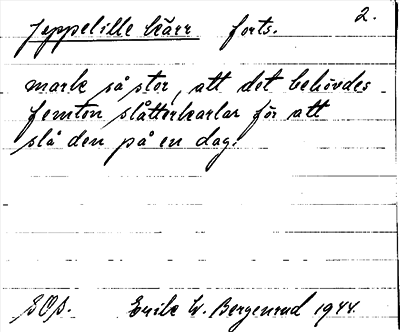 Jeppelille kärr forts. 2.
mark så stor, att det behövdes
femton slåtterkarlar för att
slå den på en dag.
Erik W. Bergenrud 1944.